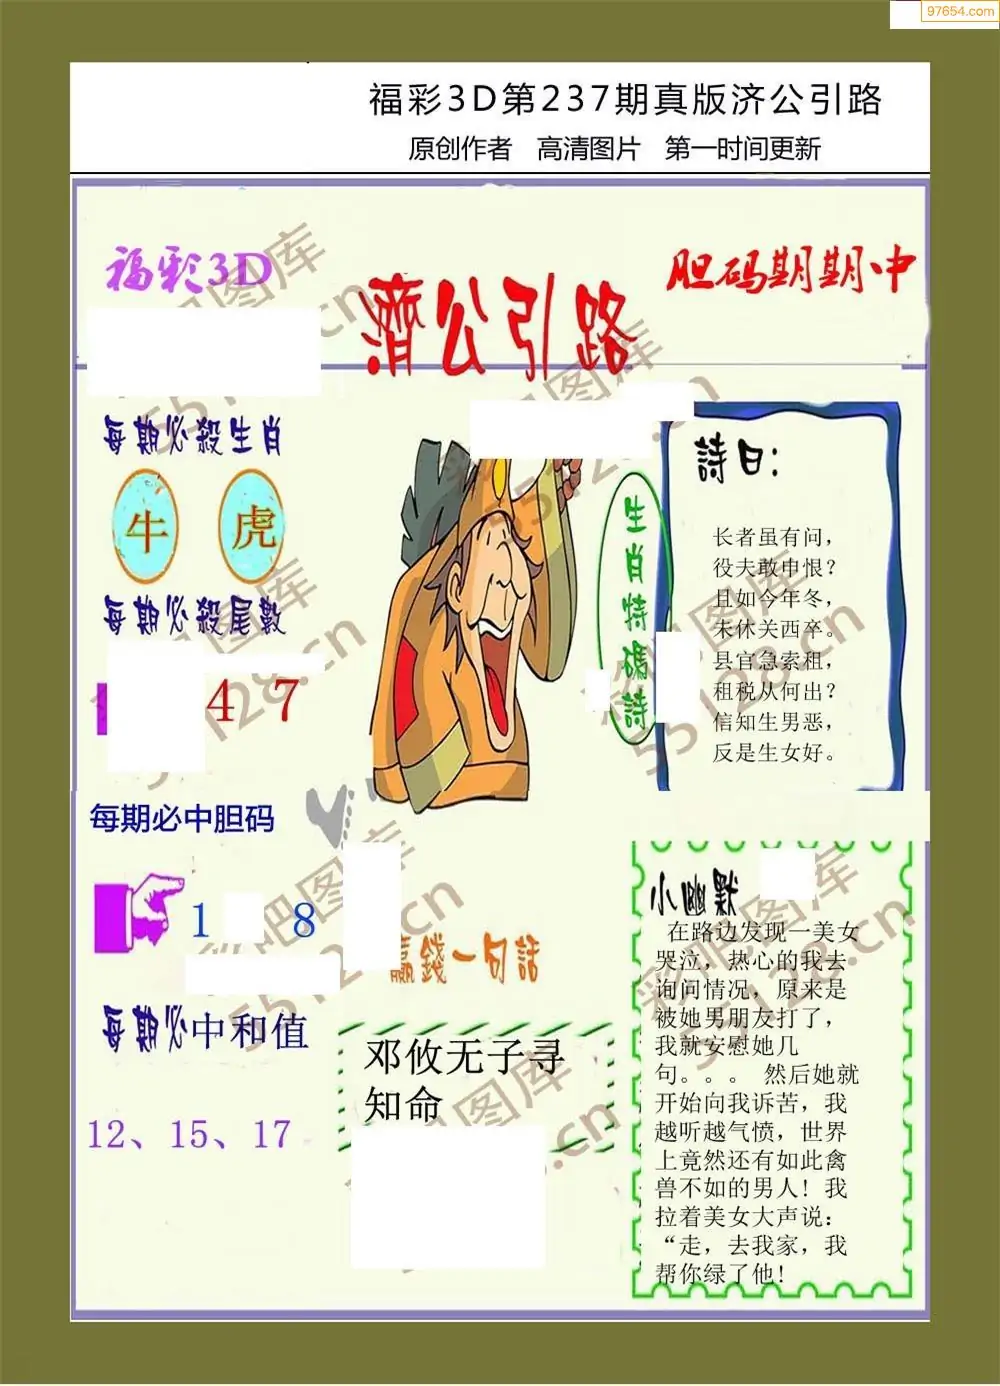 97654.com
福彩3D第237期真版济公引路
原创作者 高清图片 第一时间更新
福彩3D
濟公引路
胆码期期中
每期必殺生肖
牛 虎
每期必殺尾數
4 7
每期必中胆码
1 8
每期必中和值
12、15、17
生肖特碼詩
詩曰:
长者虽有问，
役夫敢申恨？
且如今年冬，
未休关西卒。
县官急索租，
租税从何出？
信知生男恶，
反是生女好。
赢錢一句話
邓攸无子寻
知命
小幽默
在路边发现一美女
哭泣，热心的我去
询问情况，原来是
被她男朋友打了，
我就安慰她几
句。。。 然后她就
开始向我诉苦，我
越听越气愤，世界
上竟然还有如此禽
兽不如的男人！我
拉着美女大声说：
“走，去我家，我
帮你绿了他!
彩吧图库
55128.cn